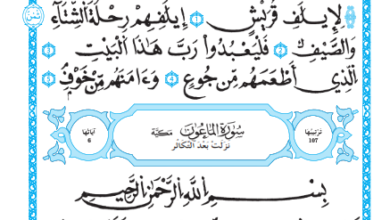 ثمن
لِإِيلَٰفِ قُرَيْشٍ ۝ إِۦلَٰفِهِمْ رِحْلَةَ اَلشِّتَآءِ
وَالصَّيْفِ ۝ فَلْيَعْبُدُواْ رَبَّ هَٰذَا اَلْبَيْتِ
اِلَّذِي أَطْعَمَهُم مِّن جُوعٍ ۝ وَءَامَنَهُم مِّنْ خَوْفٍ ۝
ترتيبها 107 سُورَةُ اَلْمَاعُونِ مَكِّيَّة آياتها 6
نزلت بعد التكاثر
بِسْمِ اِللَّهِ اِلرَّحْمَٰنِ اِلرَّحِيمِ